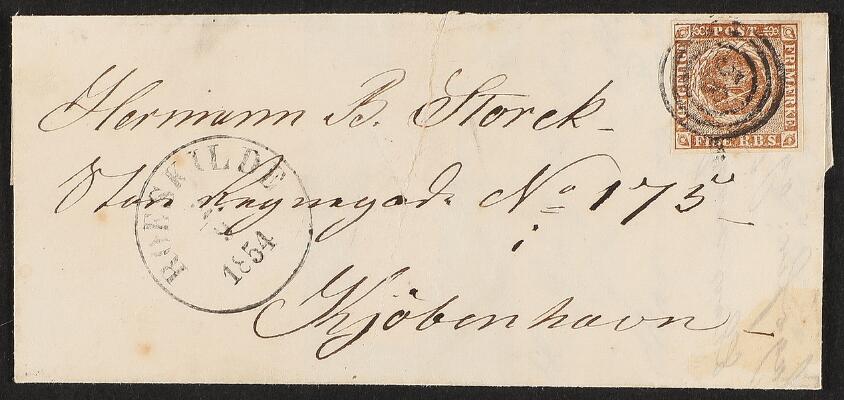 KONGELIGT POST FRIMÆRKE FIRE R.B.S.
Hermann B. Storck
ROESKILDE
1854
Store Regnegade No 175
i
Kjöbenhavn